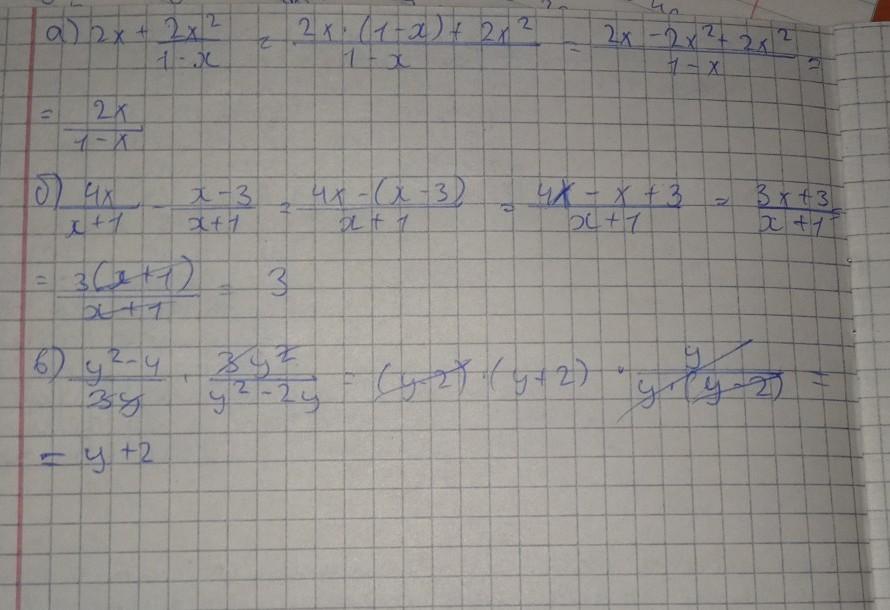 а) 2x + 2x²/(1-x) = (2x·(1-x) + 2x²)/(1-x) = (2x - 2x² + 2x²)/(1-x) =
= 2x/(1-x)
б) 4x/(x+1) - (x-3)/(x+1) = (4x-(x-3))/(x+1) = (4x - x + 3)/(x+1) = (3x+3)/(x+1) =
= 3(x+1)/(x+1) = 3
в) (y²-4)/(3y) · 3y²/(y²-2y) = (y-2)·(y+2) · y/(y·(y-2)) =
= y+2